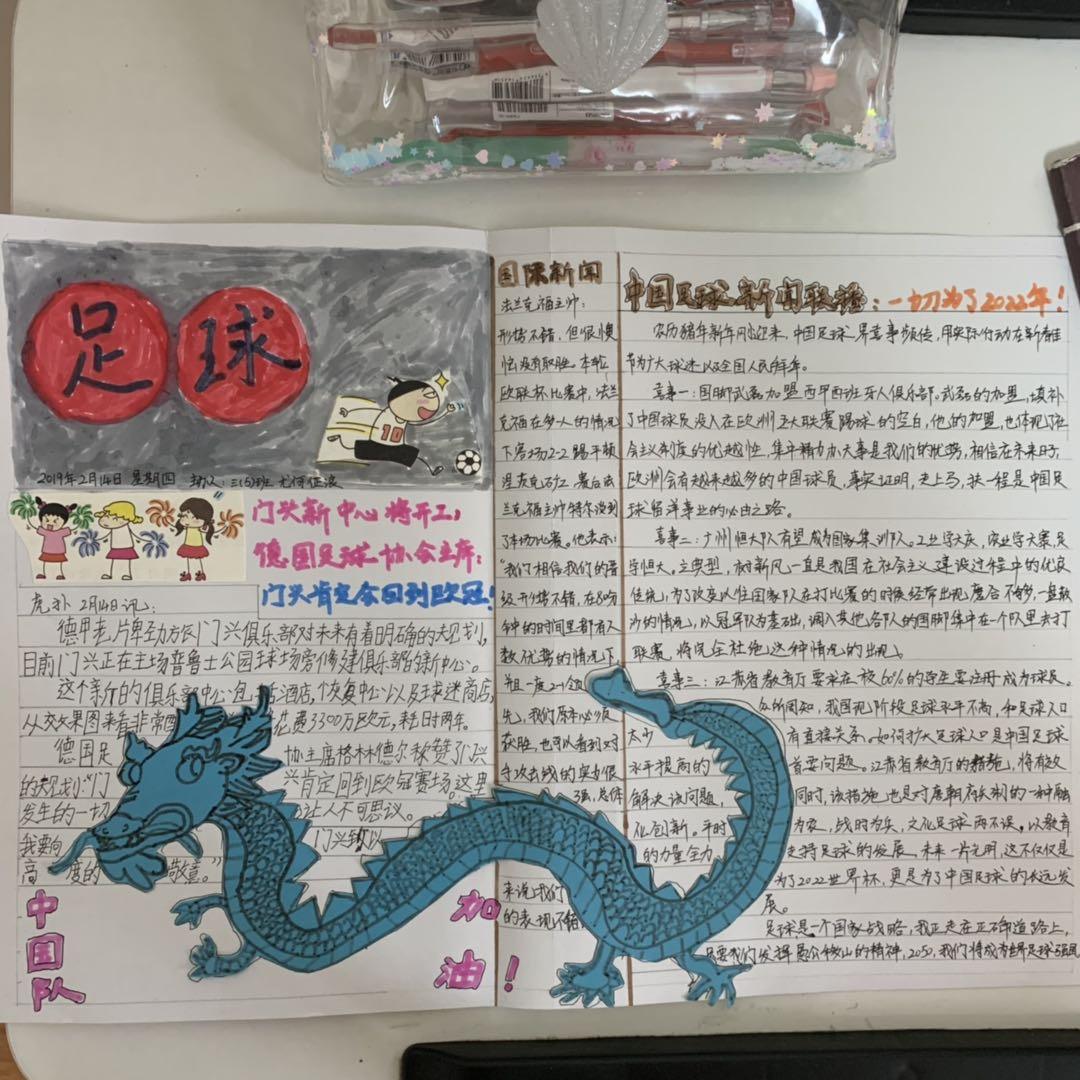 足球
10
2019年2月14日 星期四 主办人：三(5)班
门兴新中心将开工，
德国足球协会主席：
门兴肯定会回到欧冠！
虎扑 2月14日讯：
德甲老牌劲旅门兴俱乐部对未来有着明确的规划，
目前门兴正在主场普鲁士公园球场旁修建俱乐部的新中心。
这个新的俱乐部中心包括酒店，个恢复中心以及球迷商店，
从效果图来看非常 花费3300万欧元，耗时两年。
德国足 协主席格林德尔称赞了门兴
的规划“门 兴肯定回到欧冠赛场。这里
发生的一切 让人不可思议。
我要向 门兴致以
高 度的 敬意。”
中国队
加油！
国际新闻
法兰克福主帅：
形势不错，但很懊
恼没有取胜。本轮
欧联杯比赛中，法兰
克福在多人的情况
下客场2-2踢平顿
涅茨克矿工，赛后法
兰克福主帅特尔谈到
了本场比赛。他表示：
“我们相信我们的晋
级形势不错，在80分
钟的时间里都有人
数优势的情况下
并且一度2-1领
先，我们原本必须
获胜，也可以看到对
手攻击线的实力很
强，总体
来说我们
的表现不错
中国足球新闻联播：一切为了2022年！
农历猪年新年刚迎来，中国足球界喜事频传，用实际行动在新春佳
节为广大球迷以及全国人民拜年。
喜事一：国脚武磊加盟西甲西班牙人俱乐部，武磊的加盟，填补
了中国球员没人在欧洲五大联赛踢球的空白，他的加盟，也体现了社
会主义制度的优越性，集中精力办大事是我们的优势，相信在未来时，
欧洲会有越来越多的中国球员，事实证明，走上马，扶一程是中国足
球留洋事业的必由之路。
喜事二：广州恒大队有望成为国家集训队。工业学大庆，农业学大寨，足
学恒大。立典型，树新风一直是我国在社会主义建设过程中的优良
传统，为了改变以往国家队在打比赛的时候经常出现磨合不够，一盘散
沙的情况，以冠军队为基础，调入其他各队的国脚集中在一个队里去打
联赛，将完全杜绝这种情况的出现。
喜事三：江苏省教育厅要求在校60%的学生要注册成为球员。
众所周知，我国现阶段足球水平不高，和足球人口
太少 有直接关系。如何扩大足球人口是中国足球
水平提高的 首要问题。江苏省教育厅的措施，将有效
解决该问题， 同时，该措施也是对唐朝府兵制的一种融
化创新。平时 为农，战时为兵，文化足球两不误。以教育
的力量全力 支持足球的发展，未来一片光明，这不仅仅是
为了2022世界杯，更是为了中国足球的长远发
展。
足球是一个国家战略，我正走在正确道路上，
只要我们发挥愚公移山的精神，2050，我们将成为世界足球强国